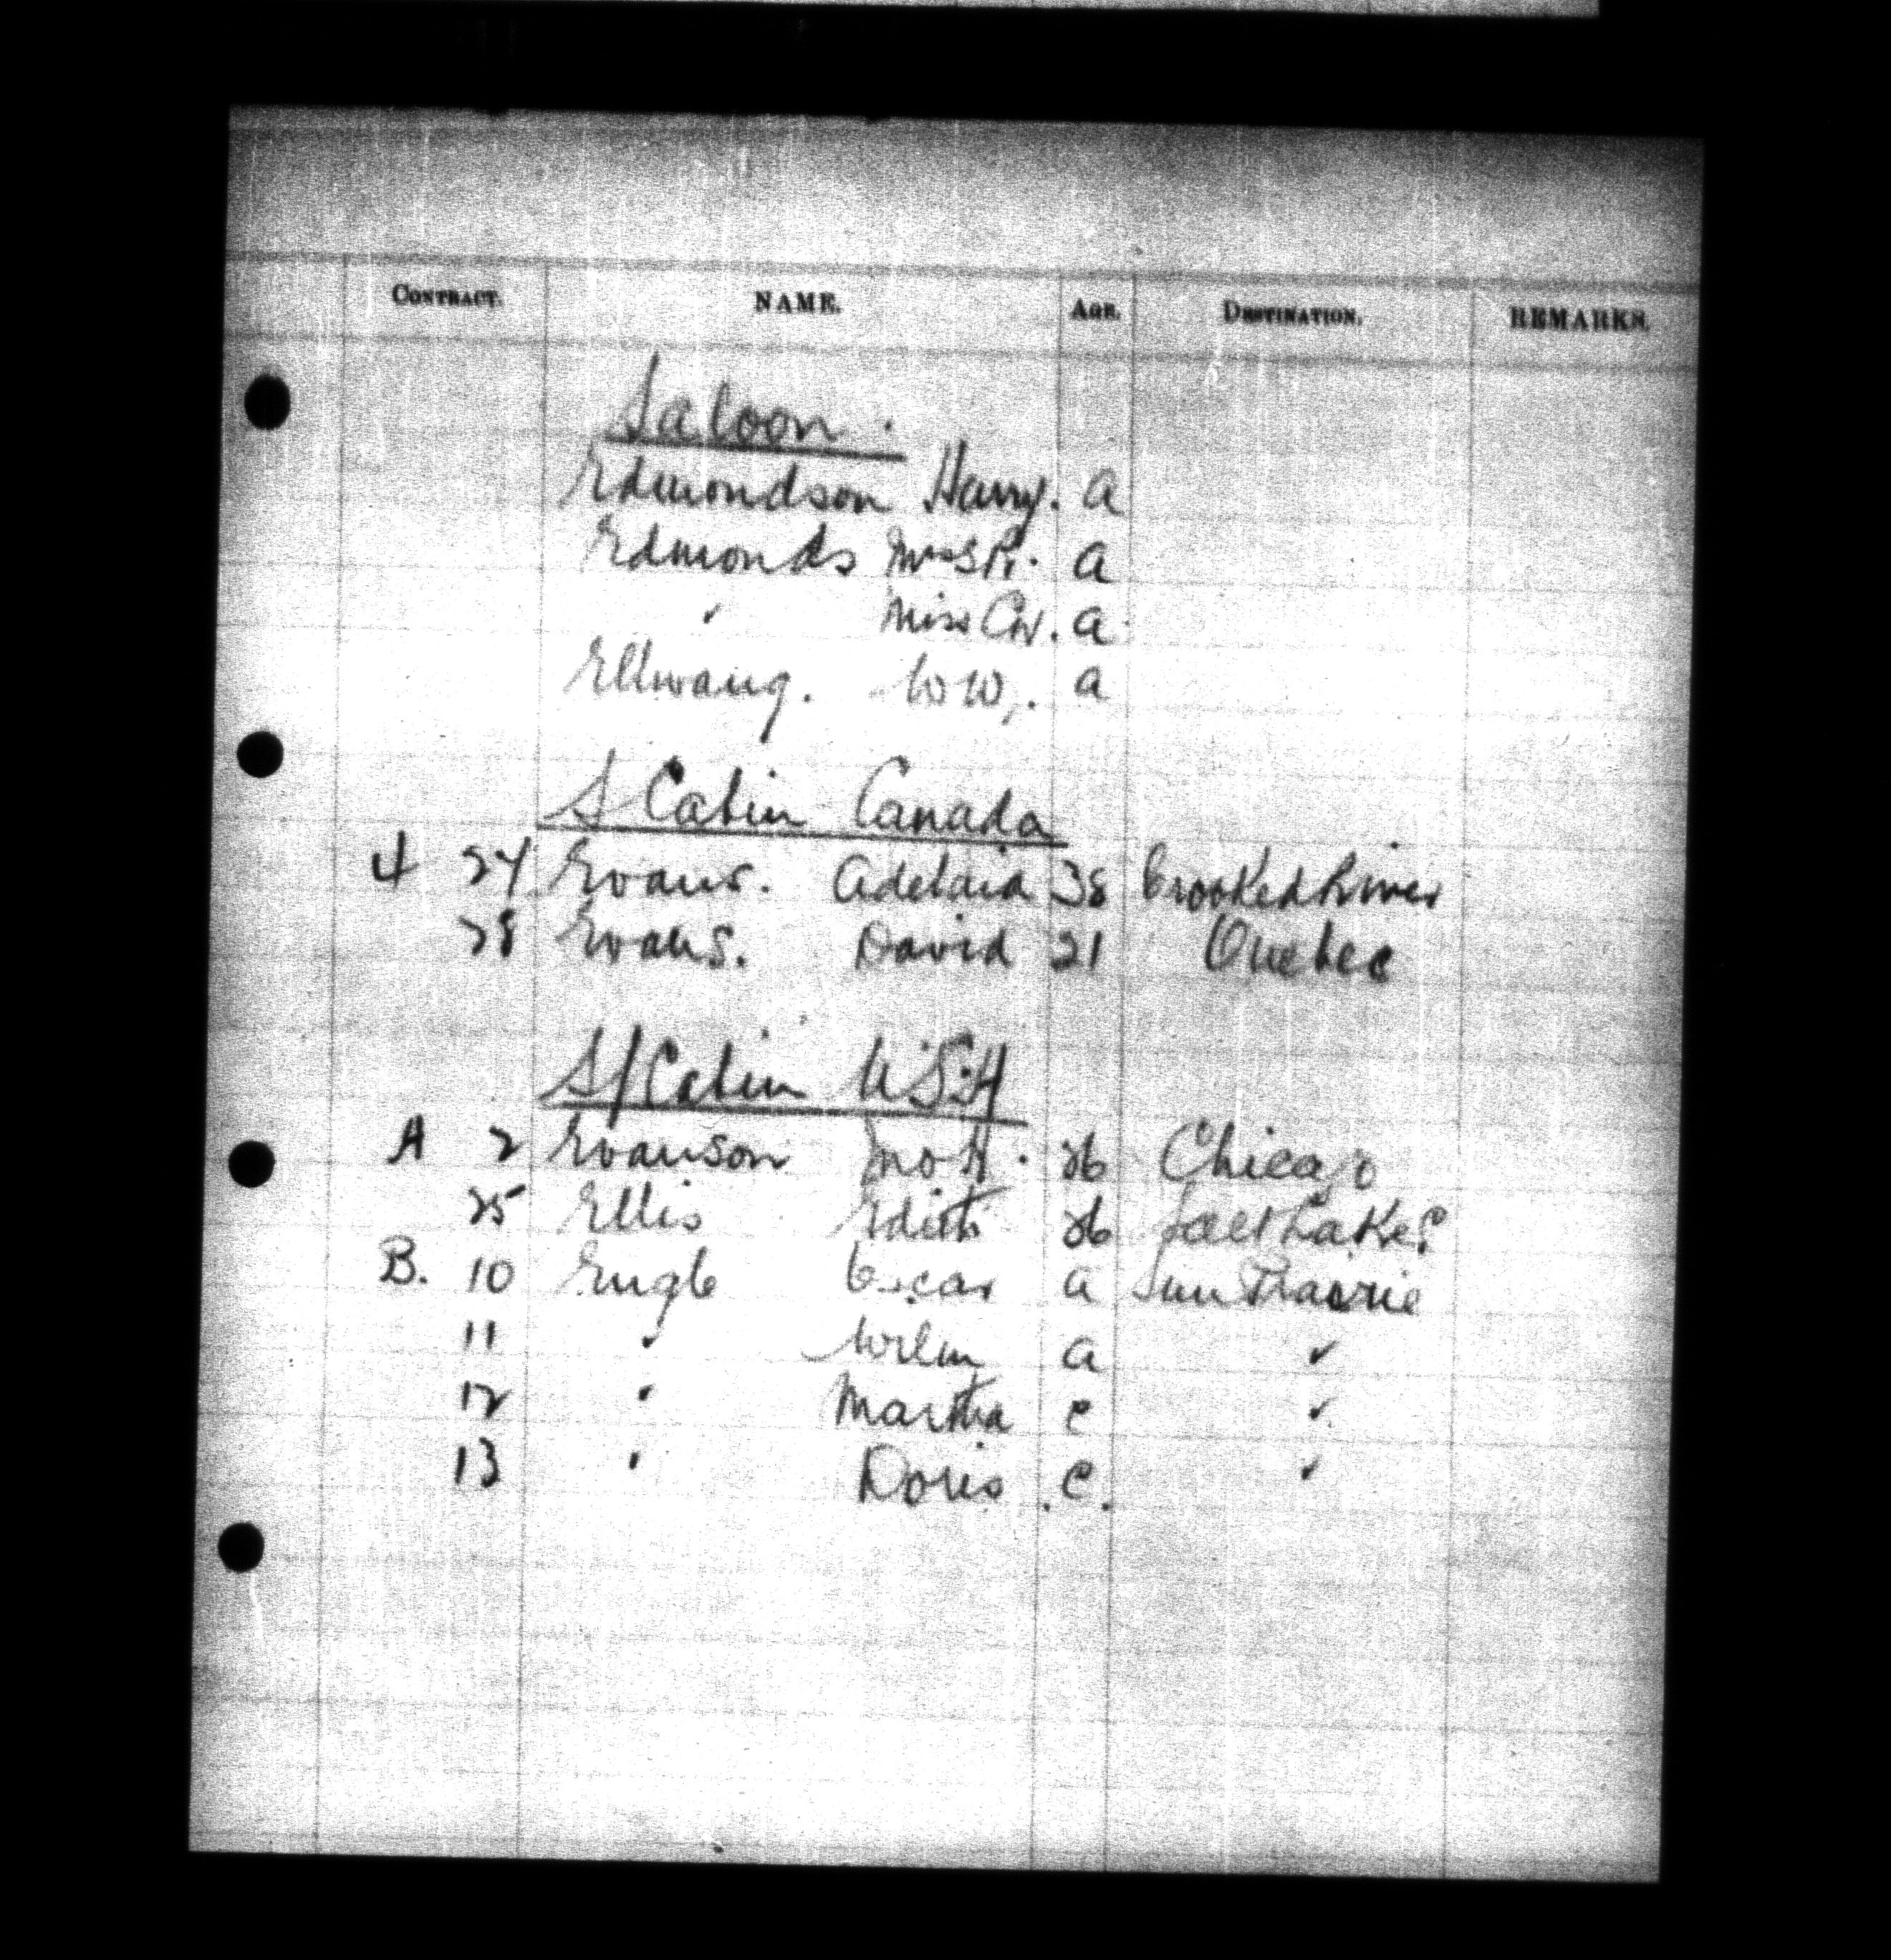 CONTRACT. NAME. AGE. DESTINATION. REMARKS.
Saloon.
Edmondson Harry. a
Edmonds Mrs S R. a
" Miss a
Ellwang. W W. a
S Cabin Canada
4 24 Evans. Adelaid 38 Crooked River
28 Evans. David 21 Quebec
S/Cabin U.S.A
A 2 Evanson Jno A. 26 Chicago
25 Ellis Edith 26 Salt Lake
B. 10 Engle Oscar a Sun Prairie
11 " a "
12 " Martha c "
13 " Doris c. "